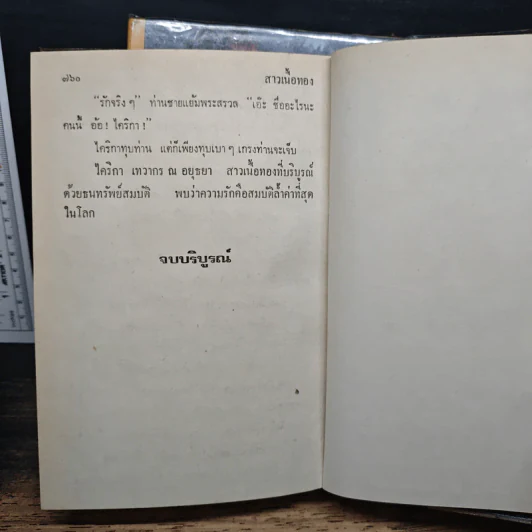 ๗๖๐ สาวเนื้อทอง
"รักจริง ๆ" ท่านชายแย้มพระสรวล "เอ๊ะ ชื่ออะไรนะ
คนนี้ อ้อ ! ไคริกา !"
ไคริกาทุบท่าน แต่ก็เพียงทุบเบา ๆ เกรงท่านจะเจ็บ
ไคริกา เทวากร ณ อยุธยา สาวเนื้อทองที่บริบูรณ์
ด้วยธนทรัพย์สมบัติ พบว่าความรักคือสมบัติล้ำค่าที่สุด
ในโลก
จบบริบูรณ์